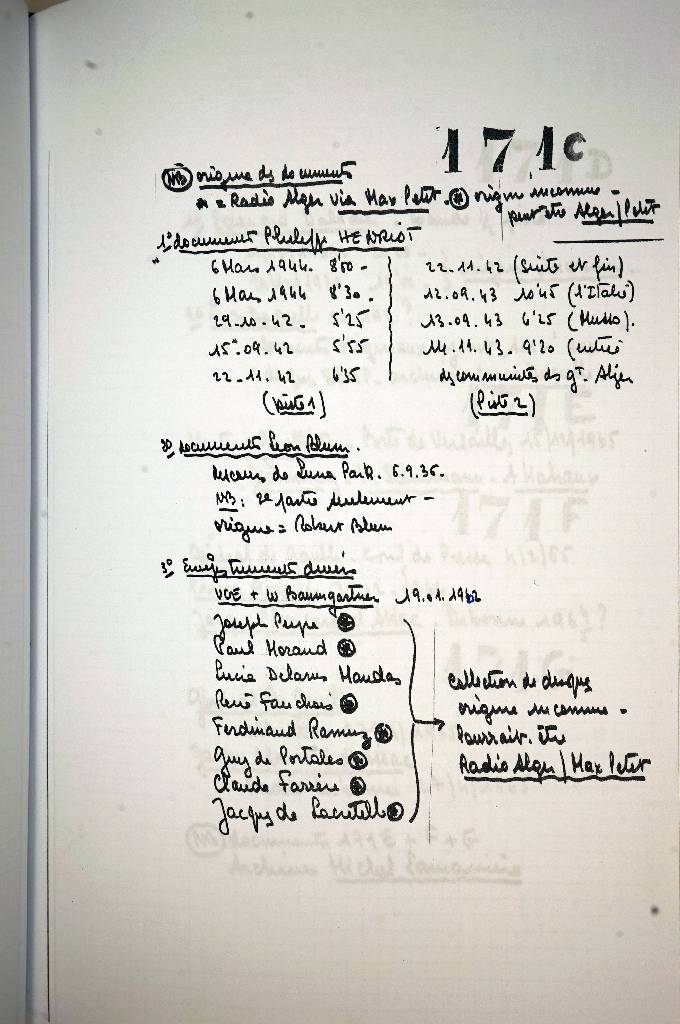 171C
NB origine des documents
* = Radio Alger via Max Petit. * origine inconnue -
peut être Alger/Petit
1° documents Philippe HENRIOT
6 Mars 1944. 8'00 -
6 Mars 1944 8'30.
29-10-42. 5'25
15.09.42 5'55
22.11.42 6'35
(piste 1)
22.11.42 (suite et fin)
12.09.43 10'45 (l'Italie)
13.09.43 6'25 (Musso).
14.11.43. 9'20 (entrée
des communistes ds gt. Alger
(Piste 2)
2° documents Leon Blum.
discours de Luna Park. 6.9.36.
NB: 2e partie seulement -
origine = Robert Blum
3° Enregistrements divers
VGE + W Baumgartner 19.01.1962
Joseph Peyre *
Paul Morand *
Lucie Delarue Mardrus
René Fauchois *
Ferdinand Ramuz *
Guy de Portales *
Claude Farrère *
Jacques de Lacretelle *
collection de disques
origine inconnue -
Pourrait être
Radio Alger/Max Petit